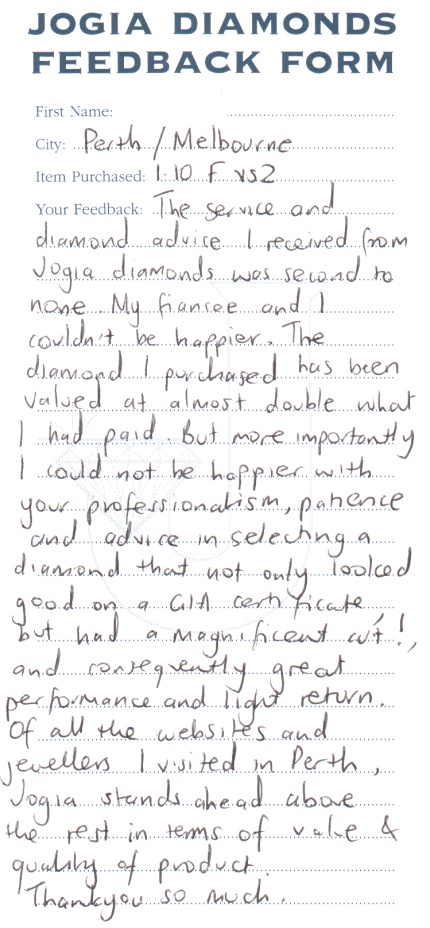 JOGIA DIAMONDS
FEEDBACK FORM
First Name:
City: Perth / Melbourne
Item Purchased: 1.10 F vs2
Your Feedback: The service and
diamond advice I received from
Jogia diamonds was second to
none. My fiancee and I
couldn't be happier. The
diamond I purchased has been
valued at almost double what
I had paid. But more importantly
I could not be happier with
your professionalism, patience
and advice in selecting a
diamond that not only looked
good on a GIA certificate,
but had a magnificent cut!,
and consequently great
performance and light return.
Of all the websites and
jewellers I visited in Perth,
Jogia stands ahead above
the rest in terms of value &
quality of product.
Thankyou so much.